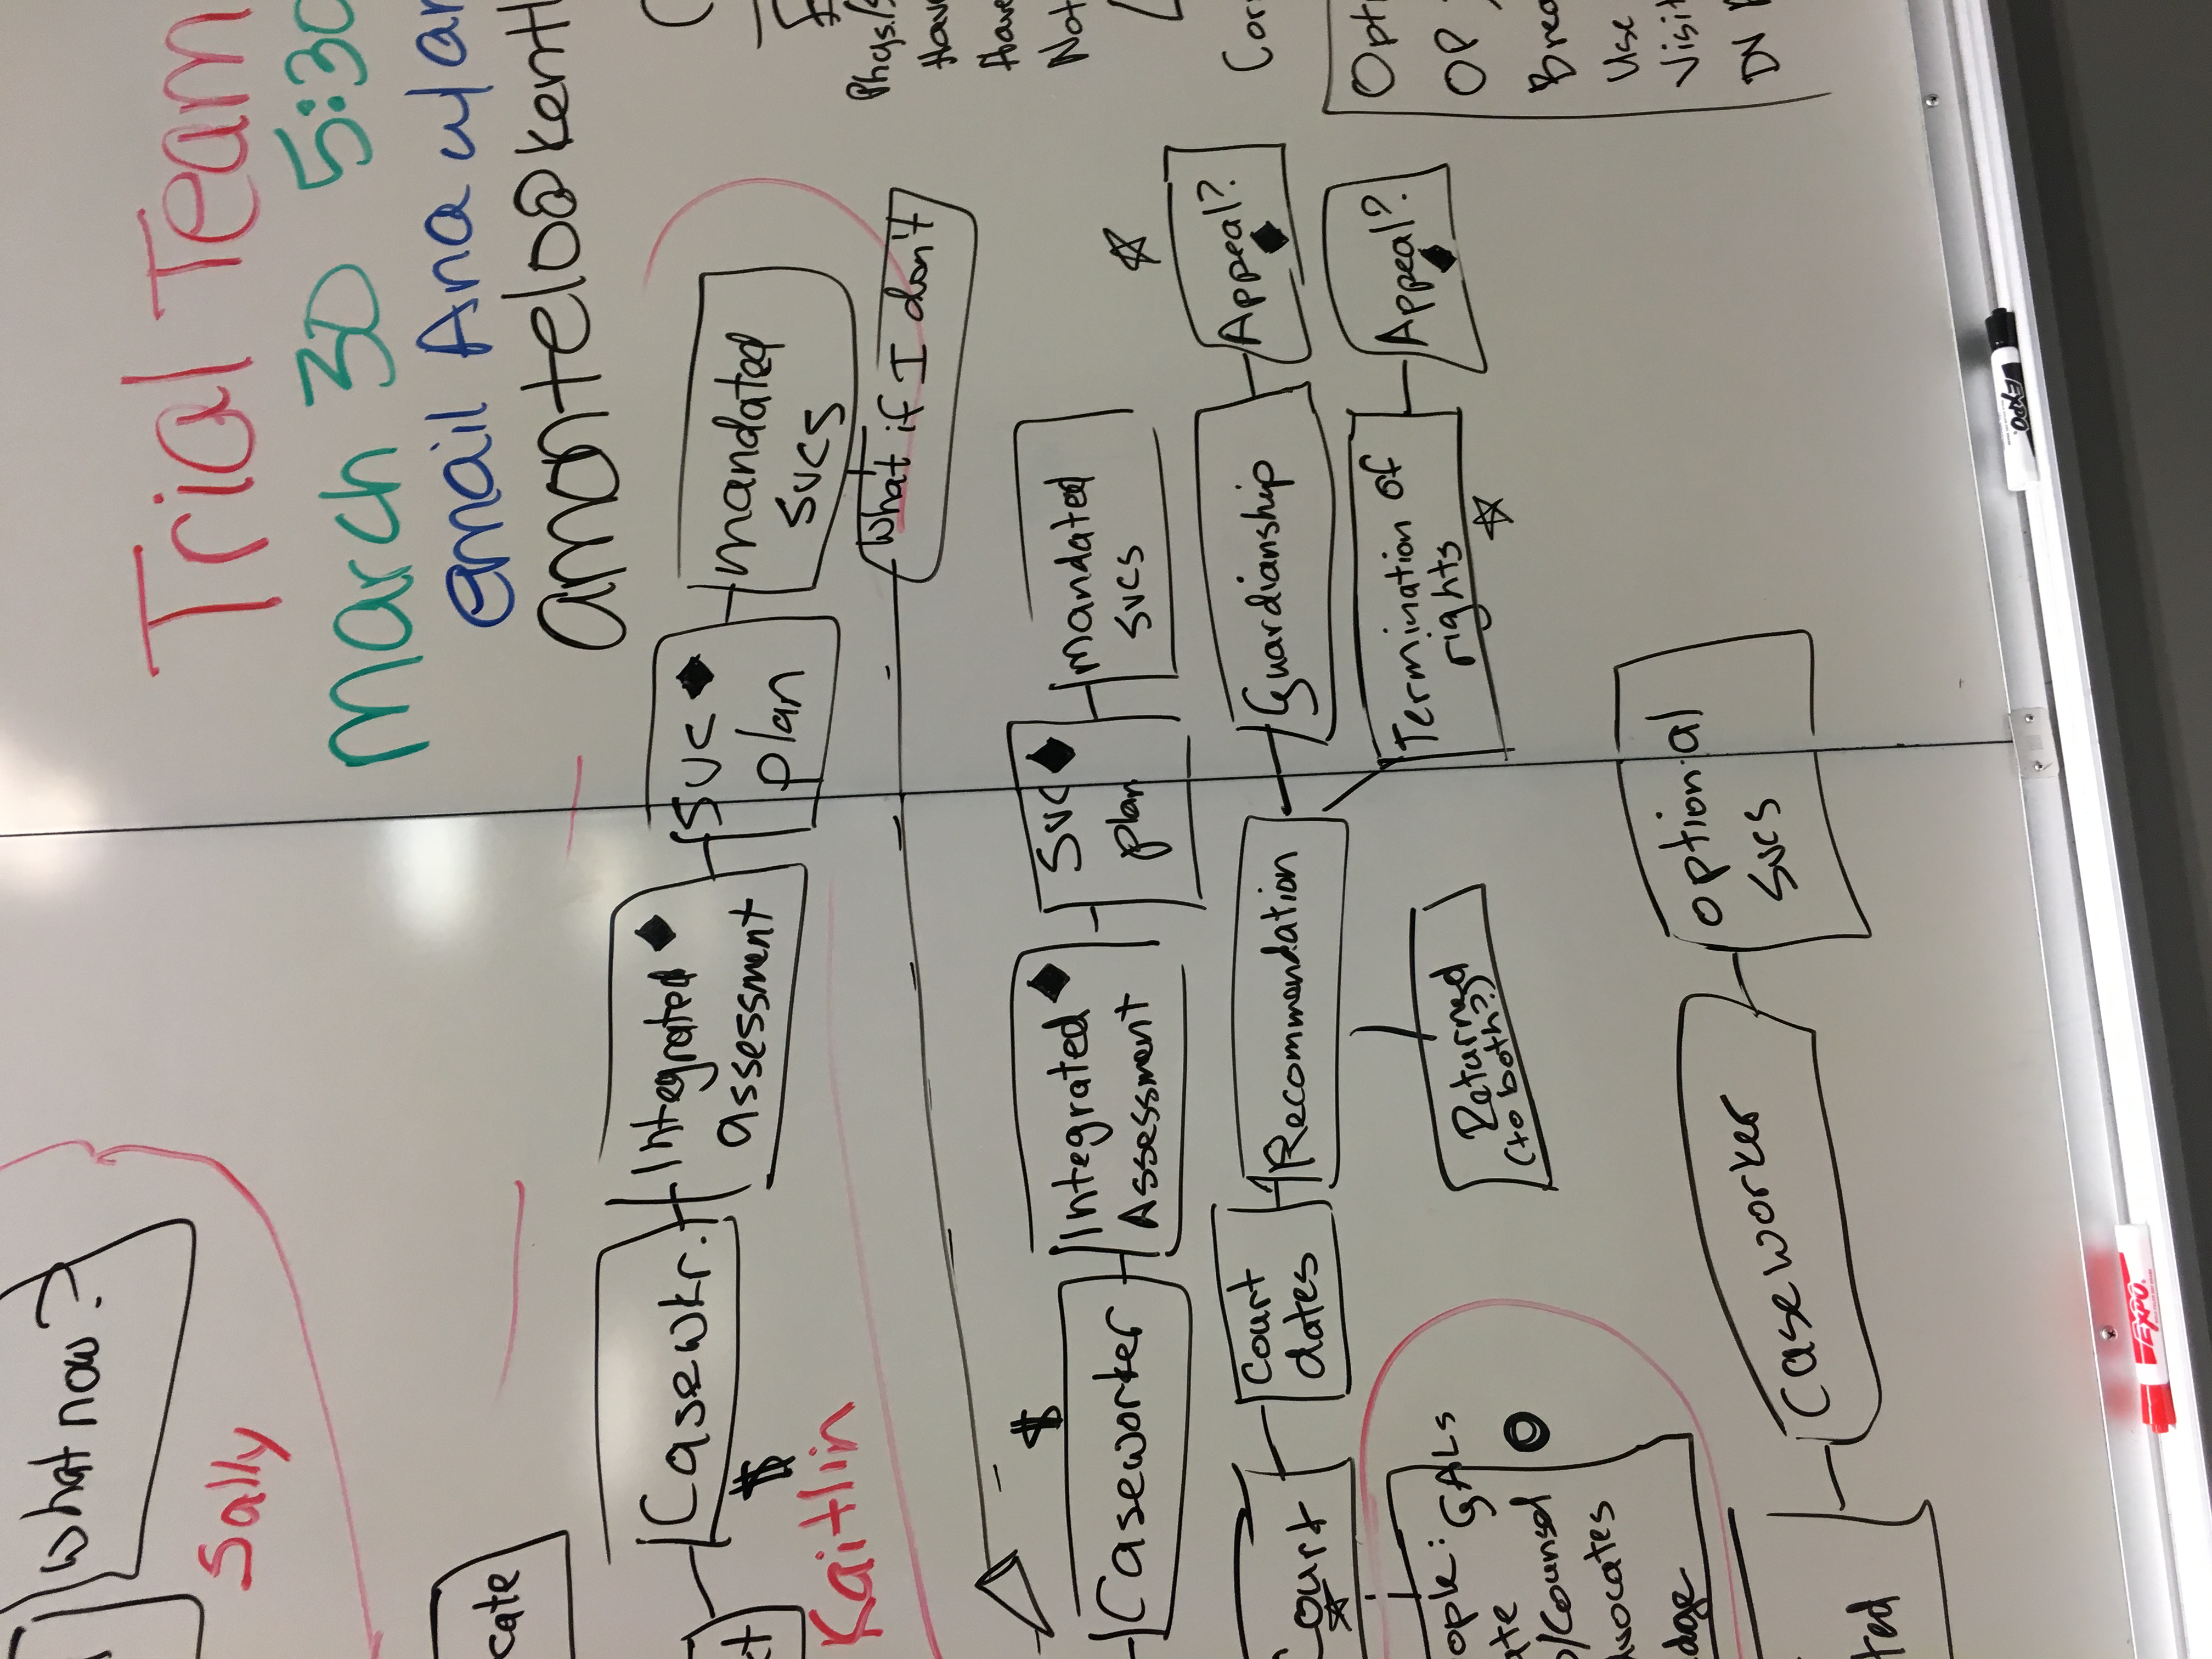 Trial Team
March 30 5:30
email Ana w/ an
amontelo@kentl
Phys./s
Have
Have
Not
Cor
Opti
OP
Brea
Use
Visit
DN
What now?
Sally
cate
Casewkr.
$
Integrated
assessment
Svc
plan
mandated
svcs
What if I don't
Kaitlin
$
Caseworker
Integrated
Assessment
Svc
plan
mandated
svcs
Court
Court
dates
Recommendation
Guardianship
Appeal?
Termination of
rights
Appeal?
Returned
(to both?)
ople: GALs
/Counsel
dvocates
Caseworker
Optional
Svcs
EXPO
EXPO